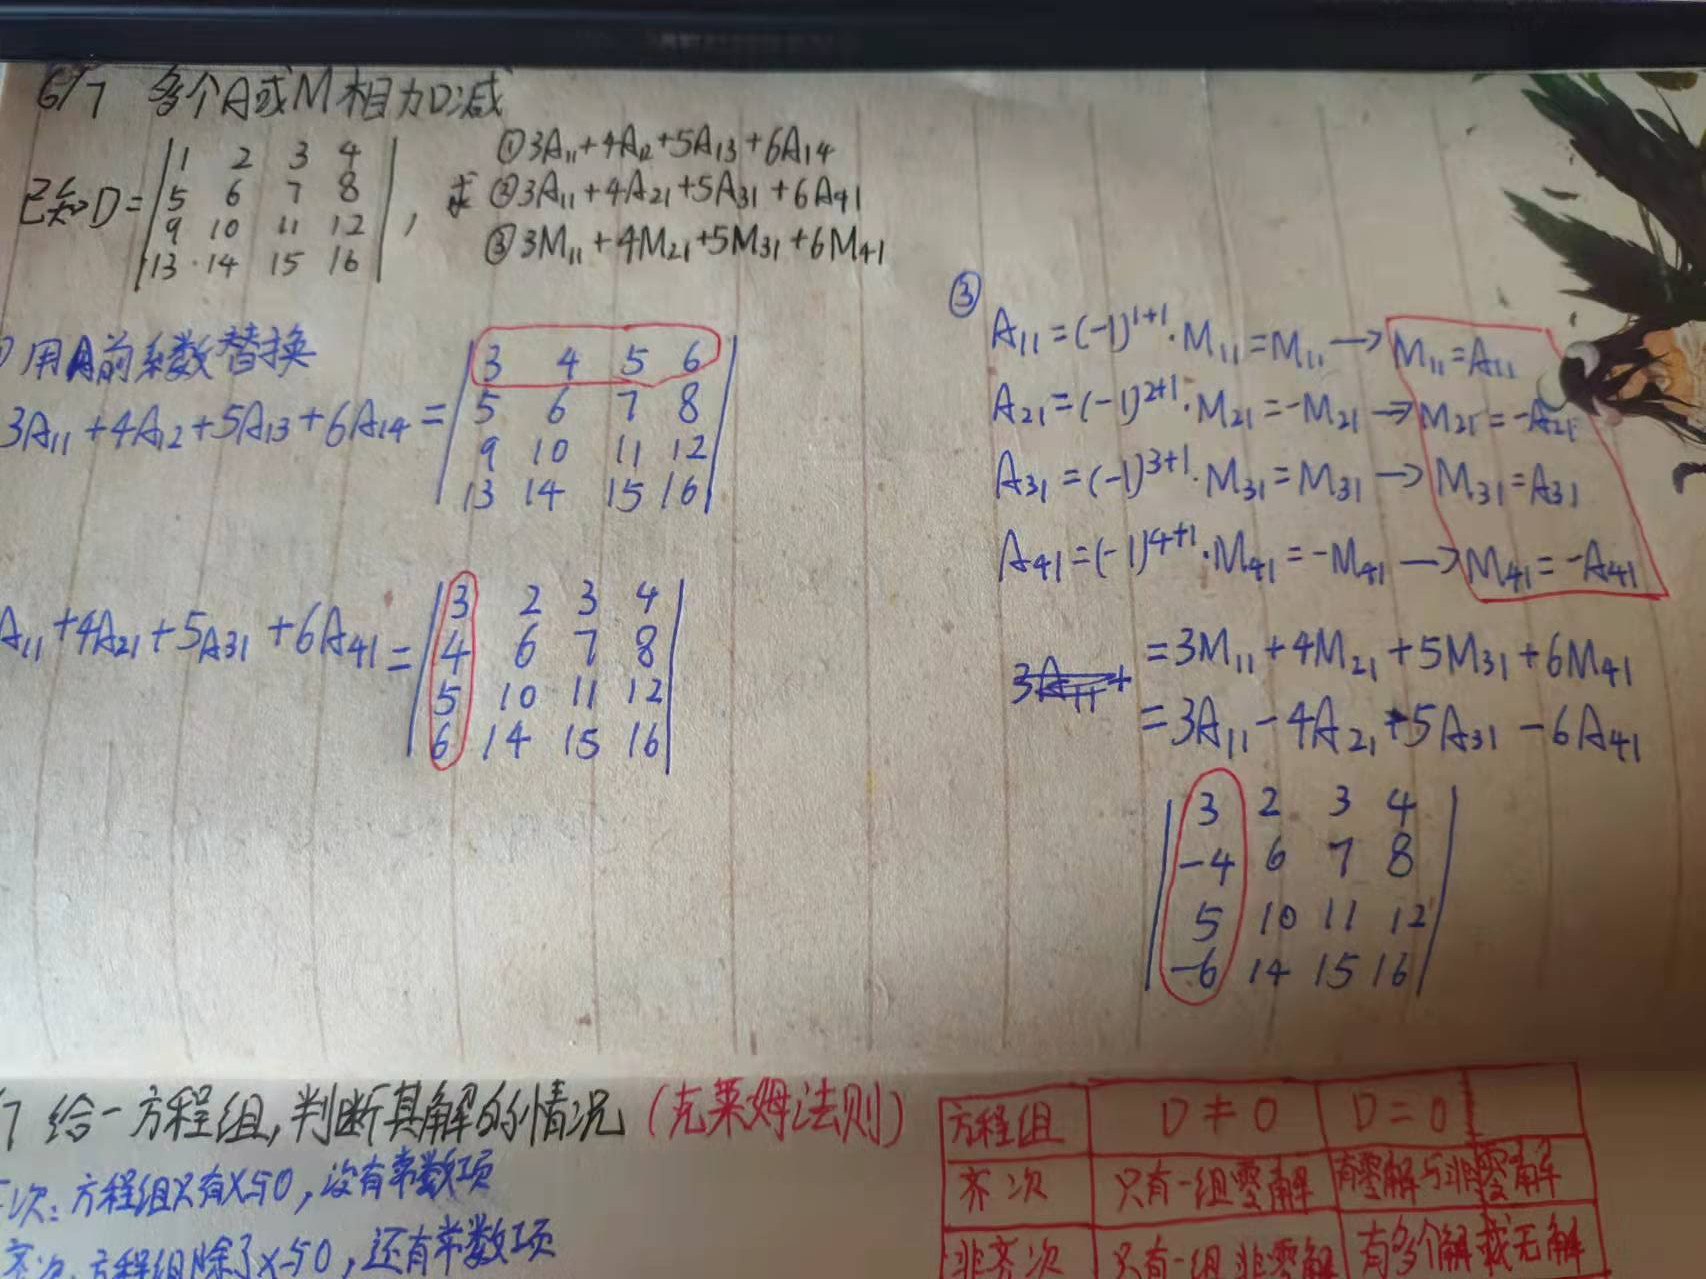 6/7 多个A或M相加减
已知D=
1 2 3 4
5 6 7 8
9 10 11 12
13 14 15 16
, 求
①3A₁₁+4A₁₂+5A₁₃+6A₁₄
②3A₁₁+4A₂₁+5A₃₁+6A₄₁
③3M₁₁+4M₂₁+5M₃₁+6M₄₁
用A前系数替换
3A₁₁+4A₁₂+5A₁₃+6A₁₄=
3 4 5 6
5 6 7 8
9 10 11 12
13 14 15 16
A₁₁+4A₂₁+5A₃₁+6A₄₁=
3 2 3 4
4 6 7 8
5 10 11 12
6 14 15 16
③
A₁₁=(-1)¹⁺¹·M₁₁=M₁₁→M₁₁=A₁₁
A₂₁=(-1)²⁺¹·M₂₁=-M₂₁→M₂₁=-A₂₁
A₃₁=(-1)³⁺¹·M₃₁=M₃₁→M₃₁=A₃₁
A₄₁=(-1)⁴⁺¹·M₄₁=-M₄₁→M₄₁=-A₄₁
=3M₁₁+4M₂₁+5M₃₁+6M₄₁
=3A₁₁-4A₂₁+5A₃₁-6A₄₁
3 2 3 4
-4 6 7 8
5 10 11 12
-6 14 15 16
7 给一方程组,判断其解的情况(克莱姆法则)
次:方程组只有x与0,没有常数项
齐次:方程组除了x与0,还有常数项
方程组 D≠0 D=0
齐次 只有一组零解 有零解与非零解
非齐次 只有一组非零解 有多个解或无解